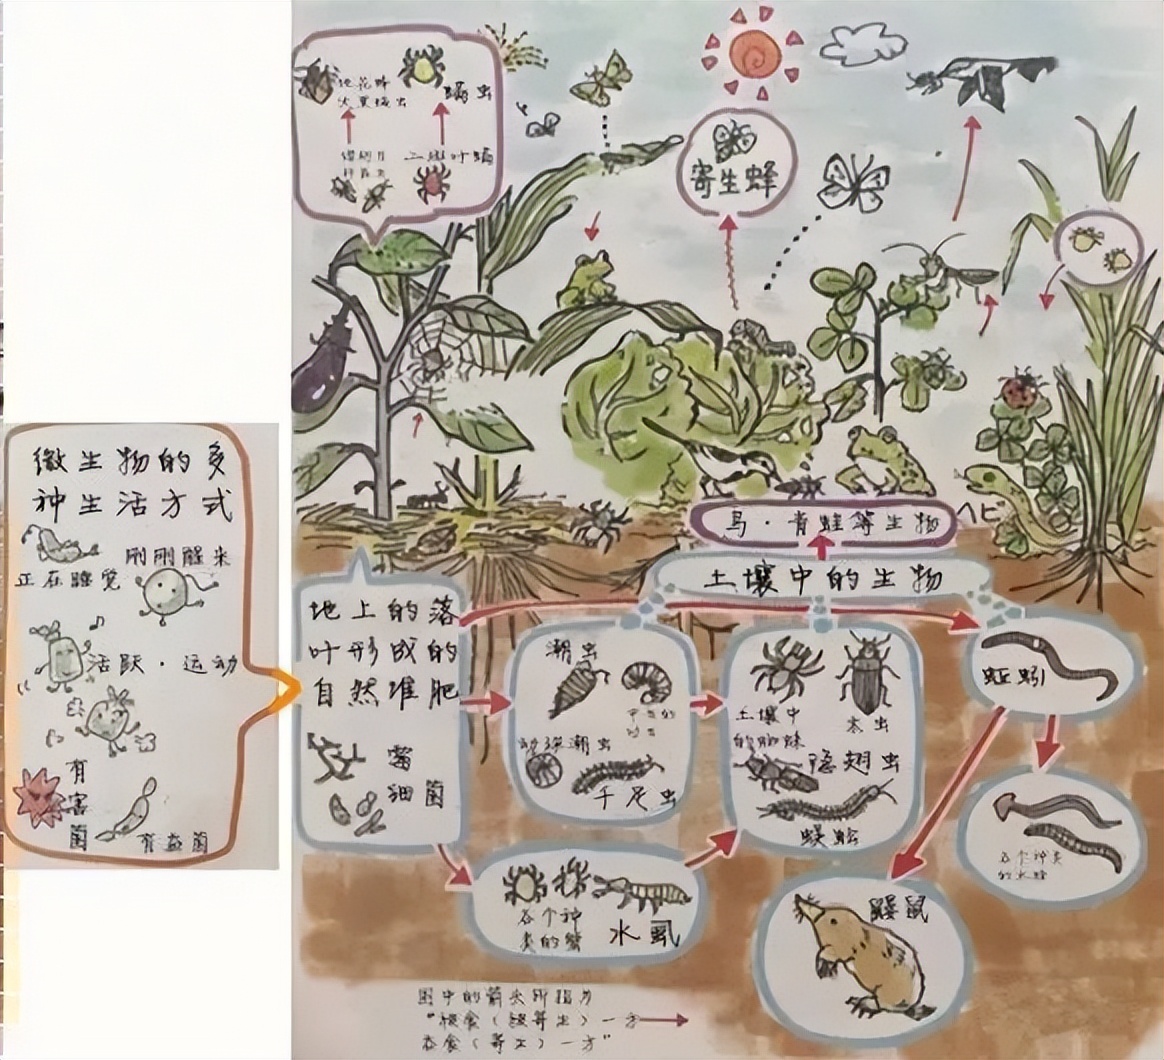 微生物的多
种生活方式
刚刚醒来
正在睡觉
活跃·运动
有
害
菌
有益菌
二斑叶螨
寄生蜂
ヘビ
鸟·青蛙等生物
土壤中的生物
地上的落
叶形成的
自然堆肥
菌
细菌
潮虫
潮虫
千足虫
土壤中
的蜘蛛
隐翅虫
蜈蚣
蚯蚓
各个种
类的
水虱
鼹鼠
各个种类
的水蛭
图中的箭头所指为
"被食(被寄生)一方